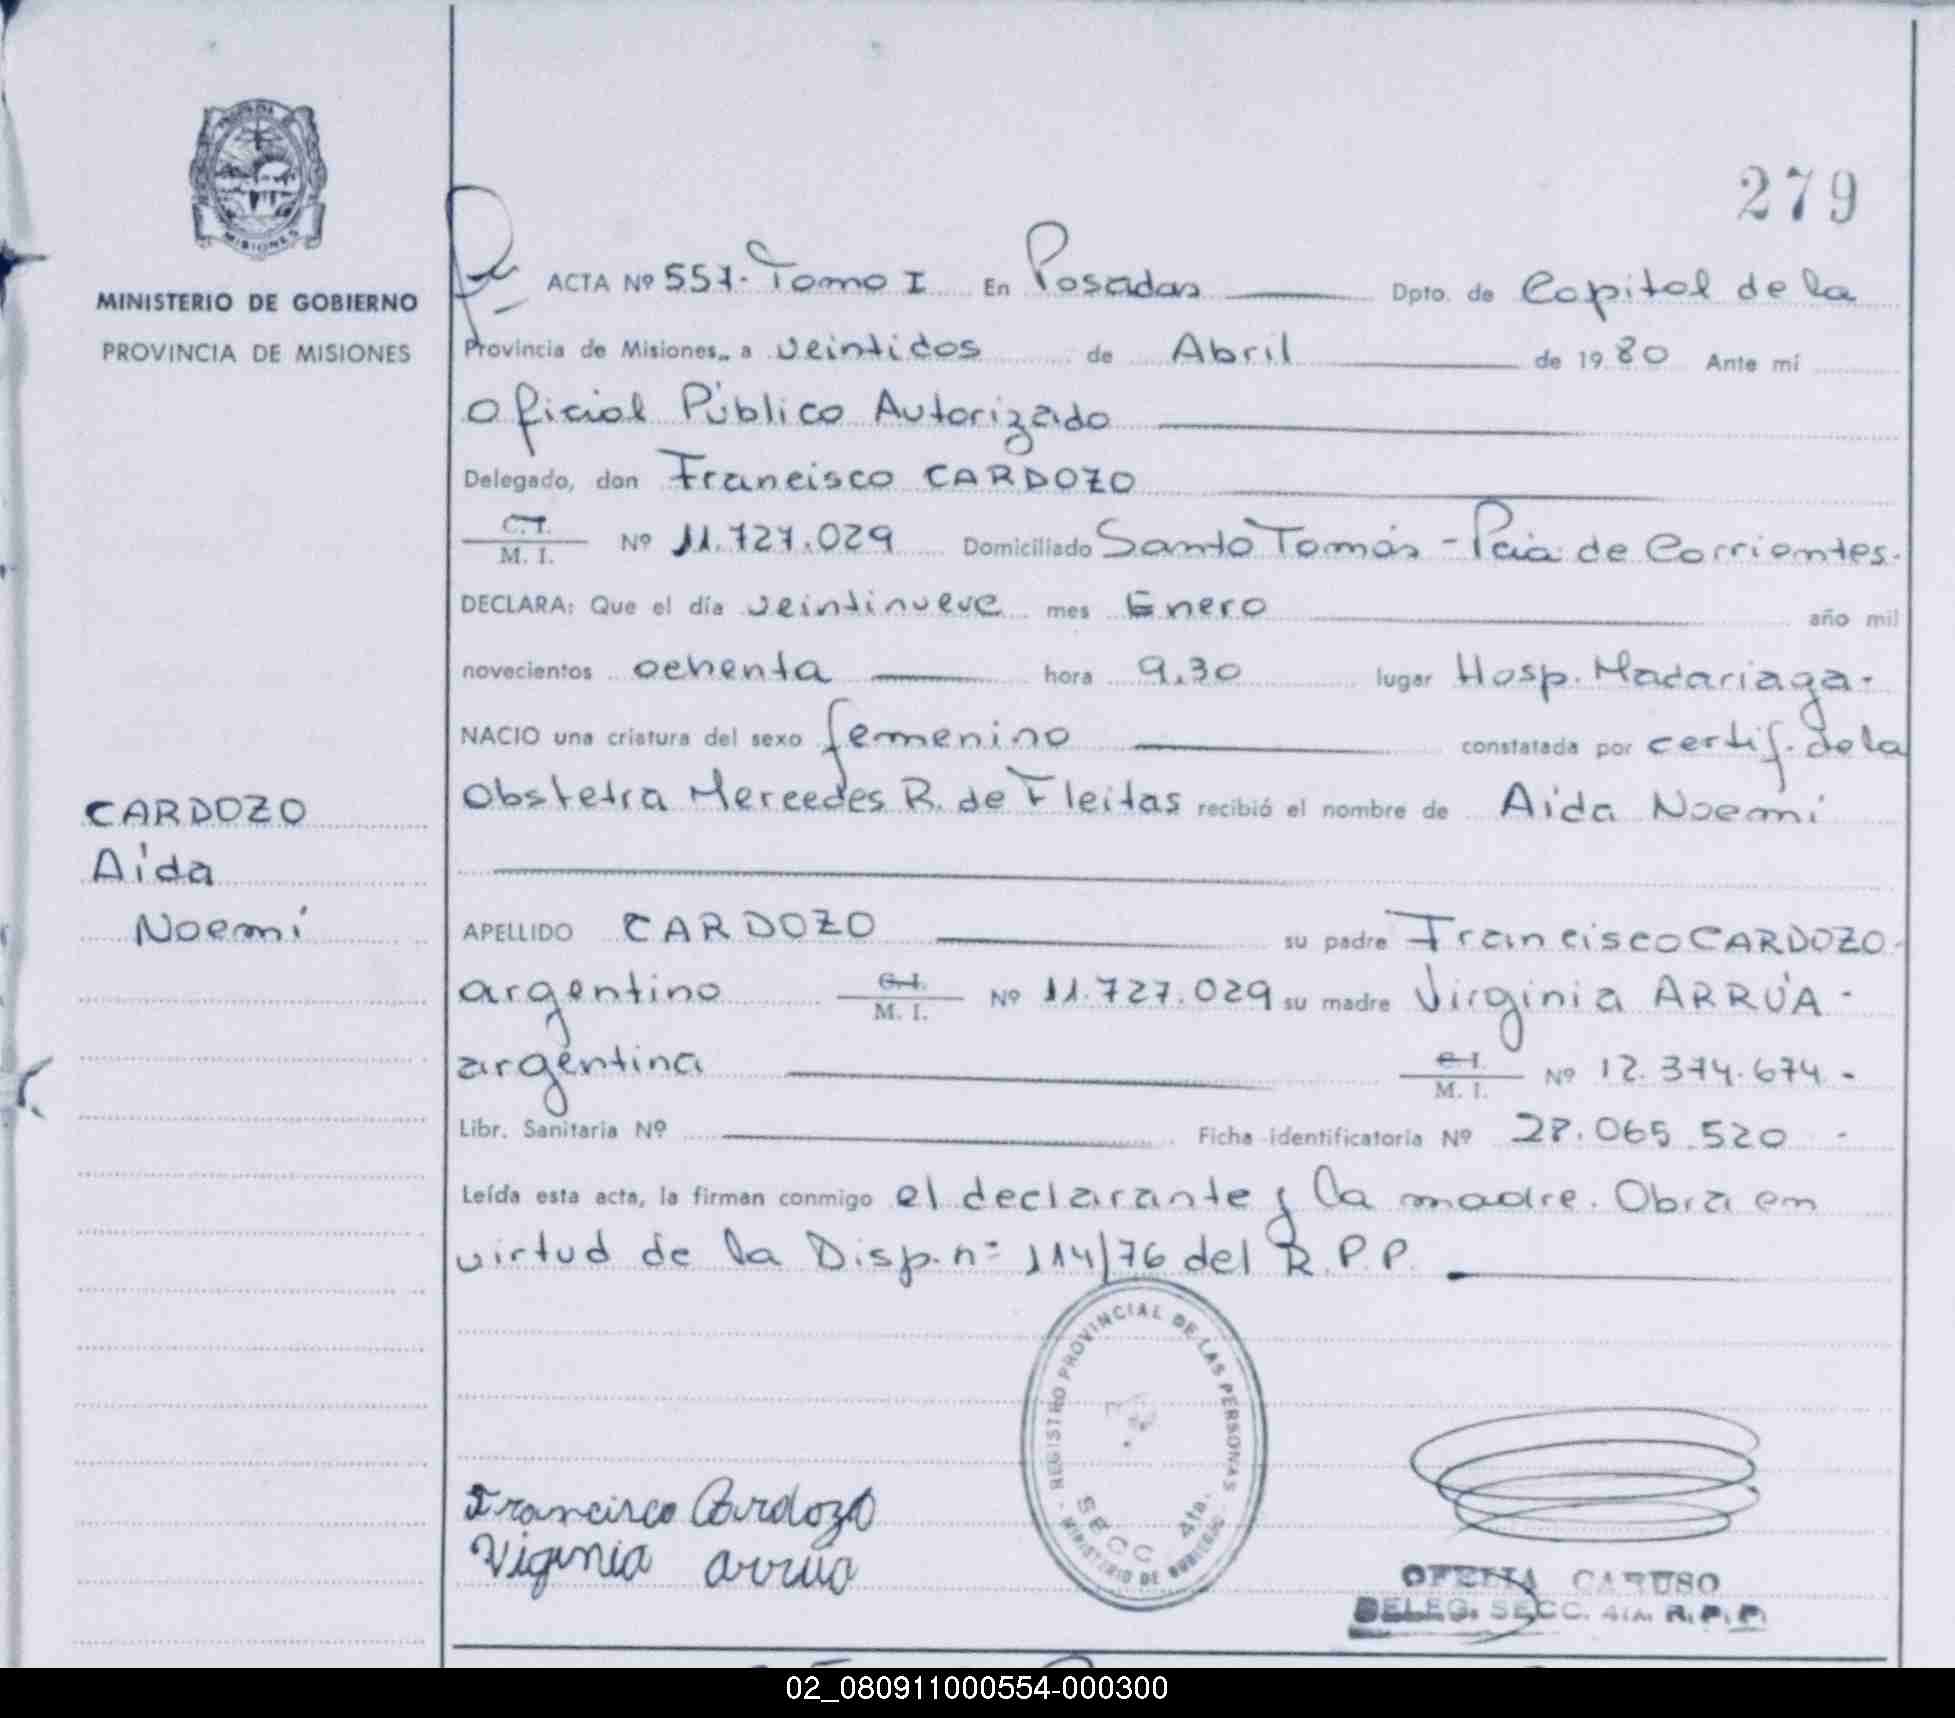 279
MISIONES
MINISTERIO DE GOBIERNO
PROVINCIA DE MISIONES
CARDOZO
Aída
Noemí
ACTA Nº 557- Tomo I En Posadas Dpto. de Capital de la
Provincia de Misiones, a veintidos de Abril de 1980 Ante mí
Oficial Público Autorizado
Delegado, don Francisco CARDOZO
C.I. M. I. Nº 11.727.029 Domiciliado Santo Tomás - Pcia de Corrientes.
DECLARA: Que el día veintinueve mes Enero año mil
novecientos ochenta hora 9,30 lugar Hosp. Madariaga.
NACIO una criatura del sexo femenino constatada por certif. de la
Obstetra Mercedes R. de Fleitas recibió el nombre de Aída Noemí
APELLIDO CARDOZO su padre Francisco CARDOZO.
argentino C.I. M. I. Nº 11.727.029 su madre Virginia ARRÚA -
argentina C.I. M. I. Nº 12.374.674.-
Libr. Sanitaria Nº Ficha identificatoria Nº 28.065.520 -
Leída esta acta, la firman conmigo el declarante y la madre. Obra en
virtud de la Disp. nº 114/76 del R.P.P.
REGISTRO PROVINCIAL DE LAS PERSONAS
SECC 4ta.
MINISTERIO DE GOBIERNO
Francisco Cardozo
Viginia arrua
OFELIA CARUSO
DELEG. SECC. 4ta. R.P.P.
02_080911000554-000300